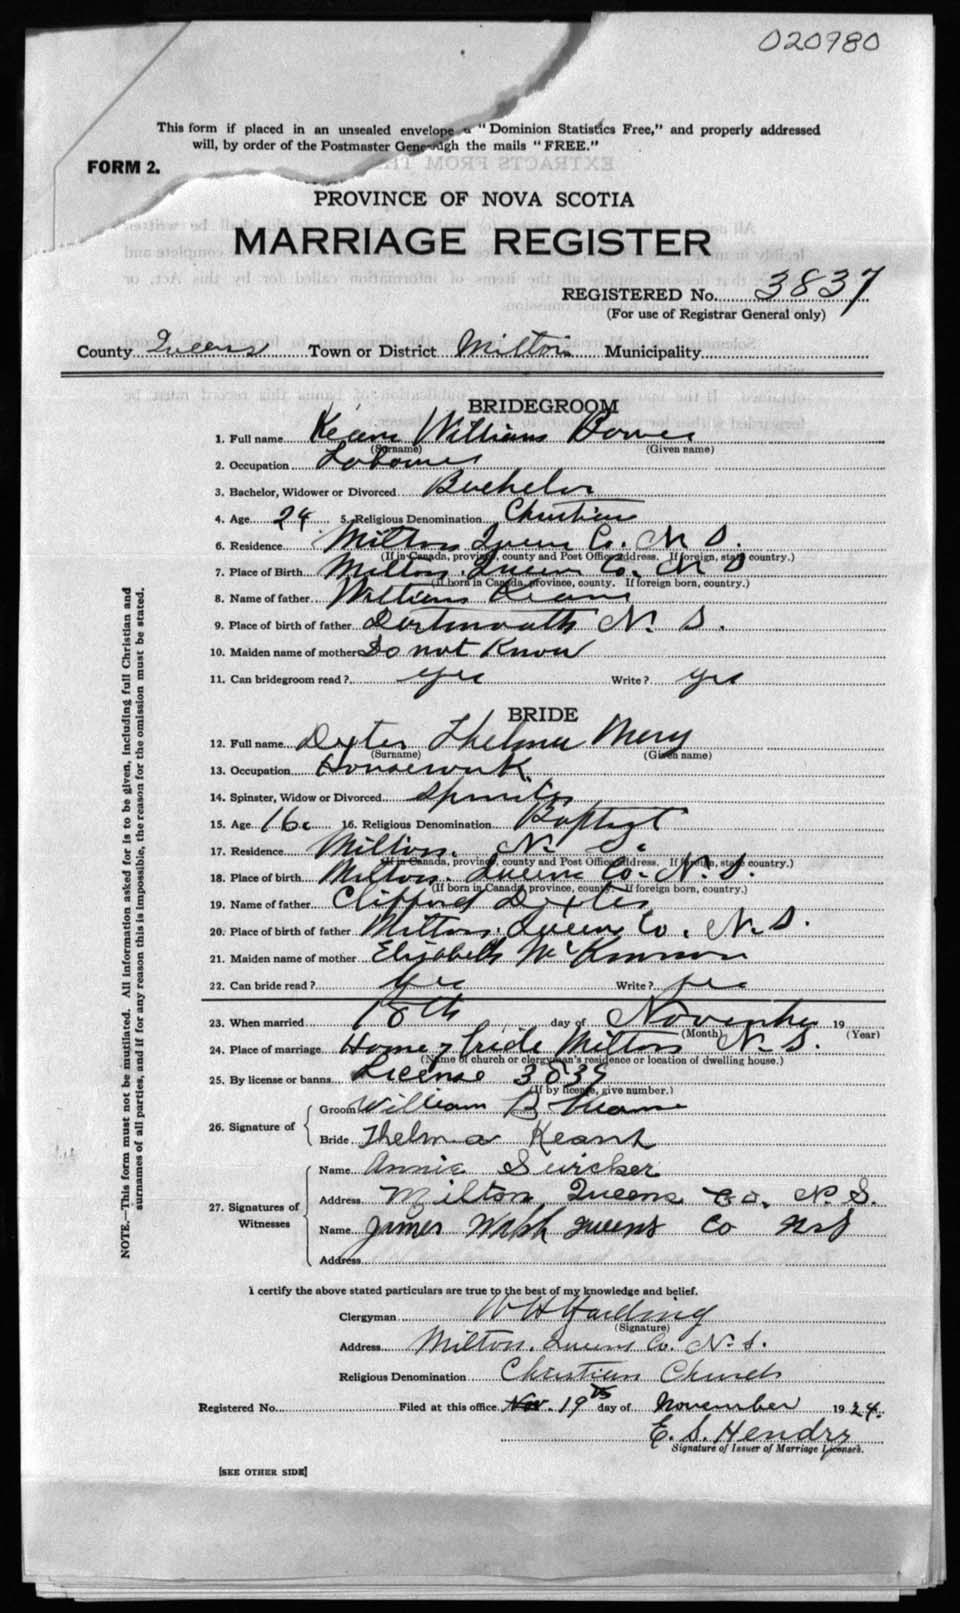 020980
This form if placed in an unsealed envelope "Dominion Statistics Free," and properly addressed
will, by order of the Postmaster through the mails "FREE."
FORM 2.
PROVINCE OF NOVA SCOTIA
MARRIAGE REGISTER
REGISTERED No. 3837
(For use of Registrar General only)
County Queens Town or District Milton Municipality
BRIDEGROOM
1. Full name Williams
(Surname) (Given name)
2. Occupation
3. Bachelor, Widower or Divorced Bachelor
4. Age 24 5. Religious Denomination Christian
6. Residence Milton Queens Co. N. S.
(If in Canada, province, county and Post Office address. If foreign, state country.)
7. Place of Birth Milton. Queens Co. N S
(If born in Canada, province, county. If foreign born, country.)
8. Name of father William
9. Place of birth of father Dartmouth N. S.
10. Maiden name of mother Do not Know
11. Can bridegroom read? yes Write? yes
BRIDE
12. Full name Dexter Thelma Mary
(Surname) (Given name)
13. Occupation Housework
14. Spinster, Widow or Divorced Spinster
15. Age 16 16. Religious Denomination Baptist
17. Residence Milton. N. S.
(If in Canada, province, county and Post Office address. If foreign, state country.)
18. Place of birth Milton. Queens Co. N. S.
(If born in Canada, province, county. If foreign born, country.)
19. Name of father Clifford Dexter
20. Place of birth of father Milton. Queens Co. N. S.
21. Maiden name of mother Elizabeth McKinnon
22. Can bride read? yes Write? yes
23. When married 18th day of November 19
(Month) (Year)
24. Place of marriage Home of bride Milton N. S.
(Name of church or clergyman's residence or location of dwelling house.)
25. By license or banns License
(If by license, give number.)
26. Signature of
Groom William B
Bride Thelma
27. Signatures of Witnesses
Name Annie Swicker
Address Milton Queens Co. N. S.
Name James Queens Co N S
Address
I certify the above stated particulars are true to the best of my knowledge and belief.
Clergyman W H Harding
(Signature)
Address Milton. Queens Co. N. S.
Religious Denomination Christian Church
Registered No. Filed at this office Nov. 19th day of November 1924.
E. S. Hendry
Signature of Issuer of Marriage Licenses.
[SEE OTHER SIDE]
NOTE.—This form must not be mutilated. All information asked for is to be given, including full Christian and
surnames of all parties, and if for any reason this is impossible, the reason for the omission must be stated.